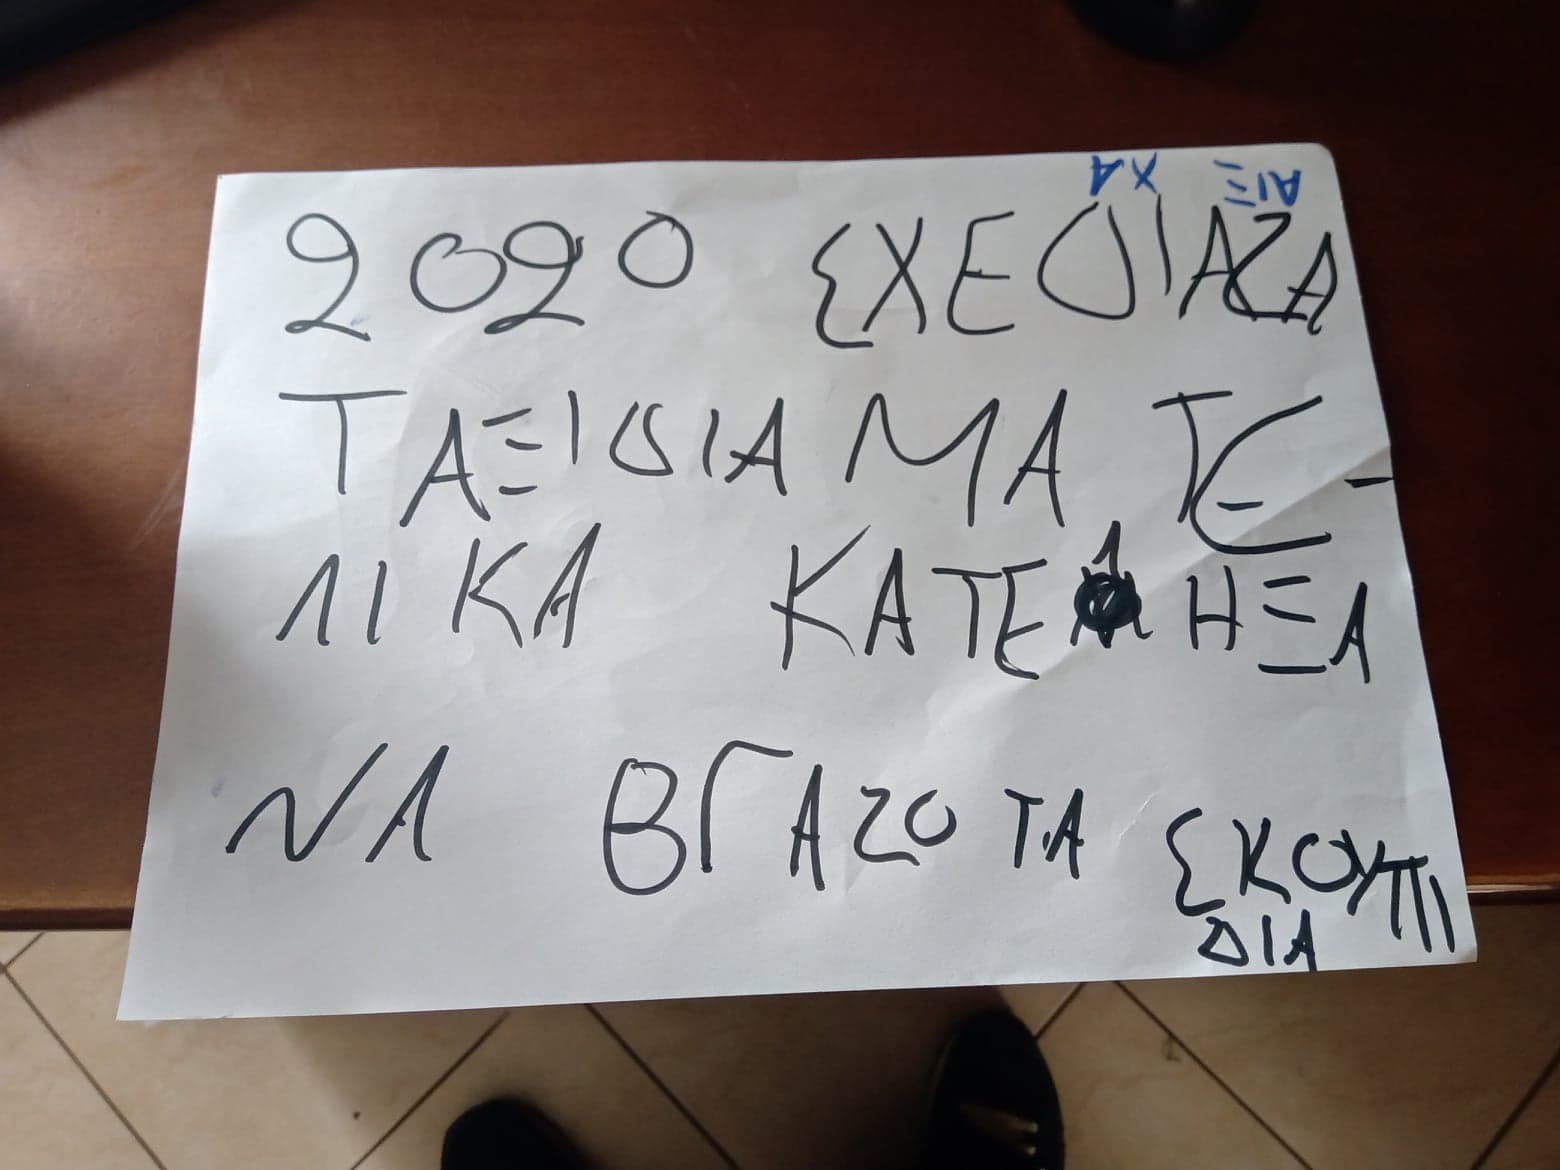 2020 ΣΧΕΔΙΑΖΑ
ΤΑΞΙΔΙΑ ΜΑ ΤΕ-
ΛΙΚΑ ΚΑΤΕΛΗΞΑ
ΝΑ ΒΓΑΖΩ ΤΑ ΣΚΟΥΠΙ
ΔΙΑ